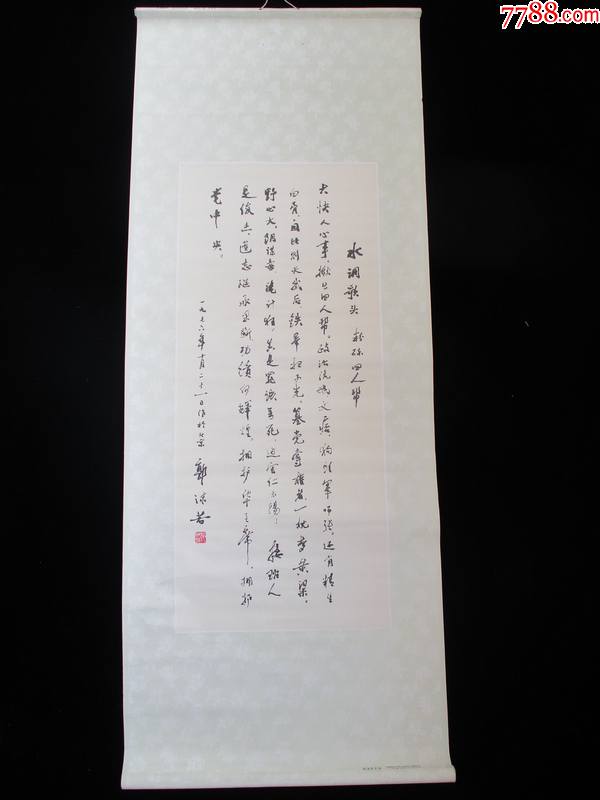 7788.com
水调歌头 粉碎四人帮
大快人心事，揪出四人帮。政治流氓文痞，狗头军师张，还有精生
白骨，自比则天武后，铁帚扫而光。篡党夺权者，一枕梦黄粱。
野心大，阴谋毒，诡计狂，真是罪该万死，迫害红太阳！接班人
是俊杰，遗志继承果断，功绩何辉煌。拥护华主席，拥护
党中央。
一九七六年十月二十一日作于北京 郭沫若